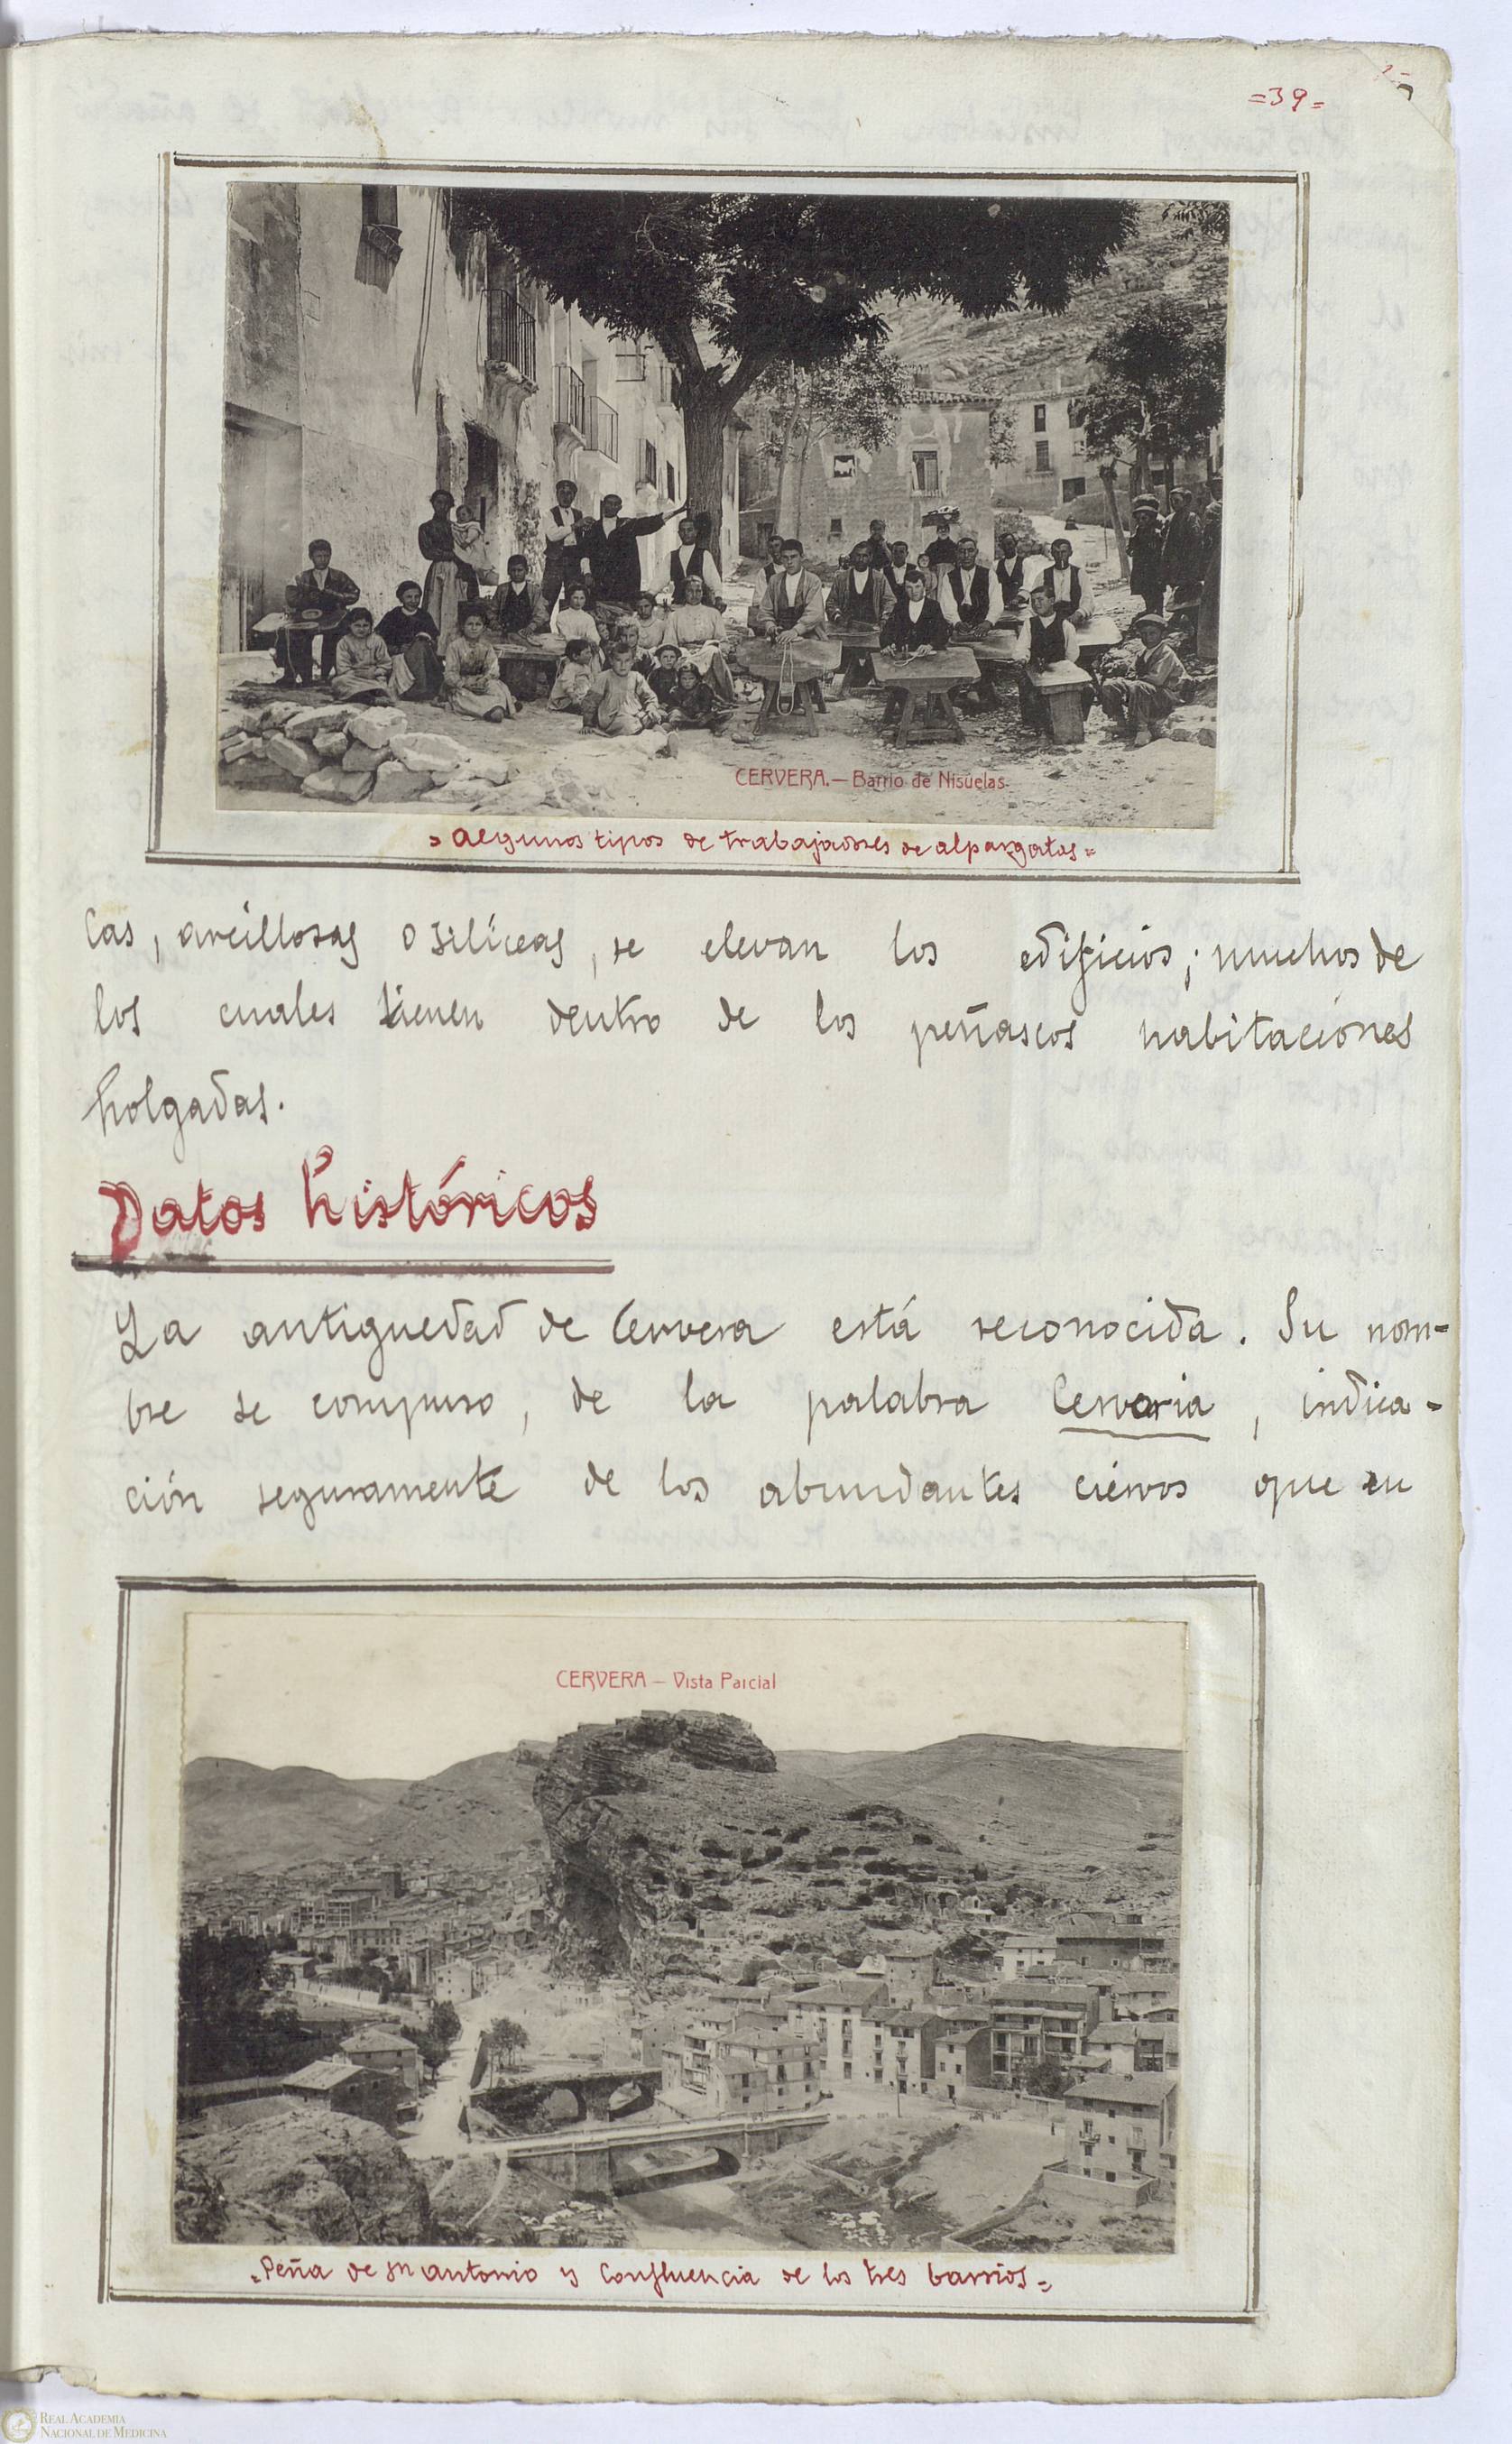 =39=
CERVERA.— Barrio de Nisuelas.
= Algunos tipos de trabajadores de alpargatas =
cas, arcillosas o silíceas, se elevan los edificios; muchos de
los cuales tienen dentro de los peñascos habitaciones
holgadas.
Datos históricos
La antiguedad de Cervera está reconocida. Su nom-
bre se compuso, de la palabra Cervaria, indica-
ción seguramente de los abundantes ciervos que en
CERVERA — Vista Parcial
= Peña de Sn Antonio y Confluencia de los tres barrios =
REAL ACADEMIA
NACIONAL DE MEDICINA